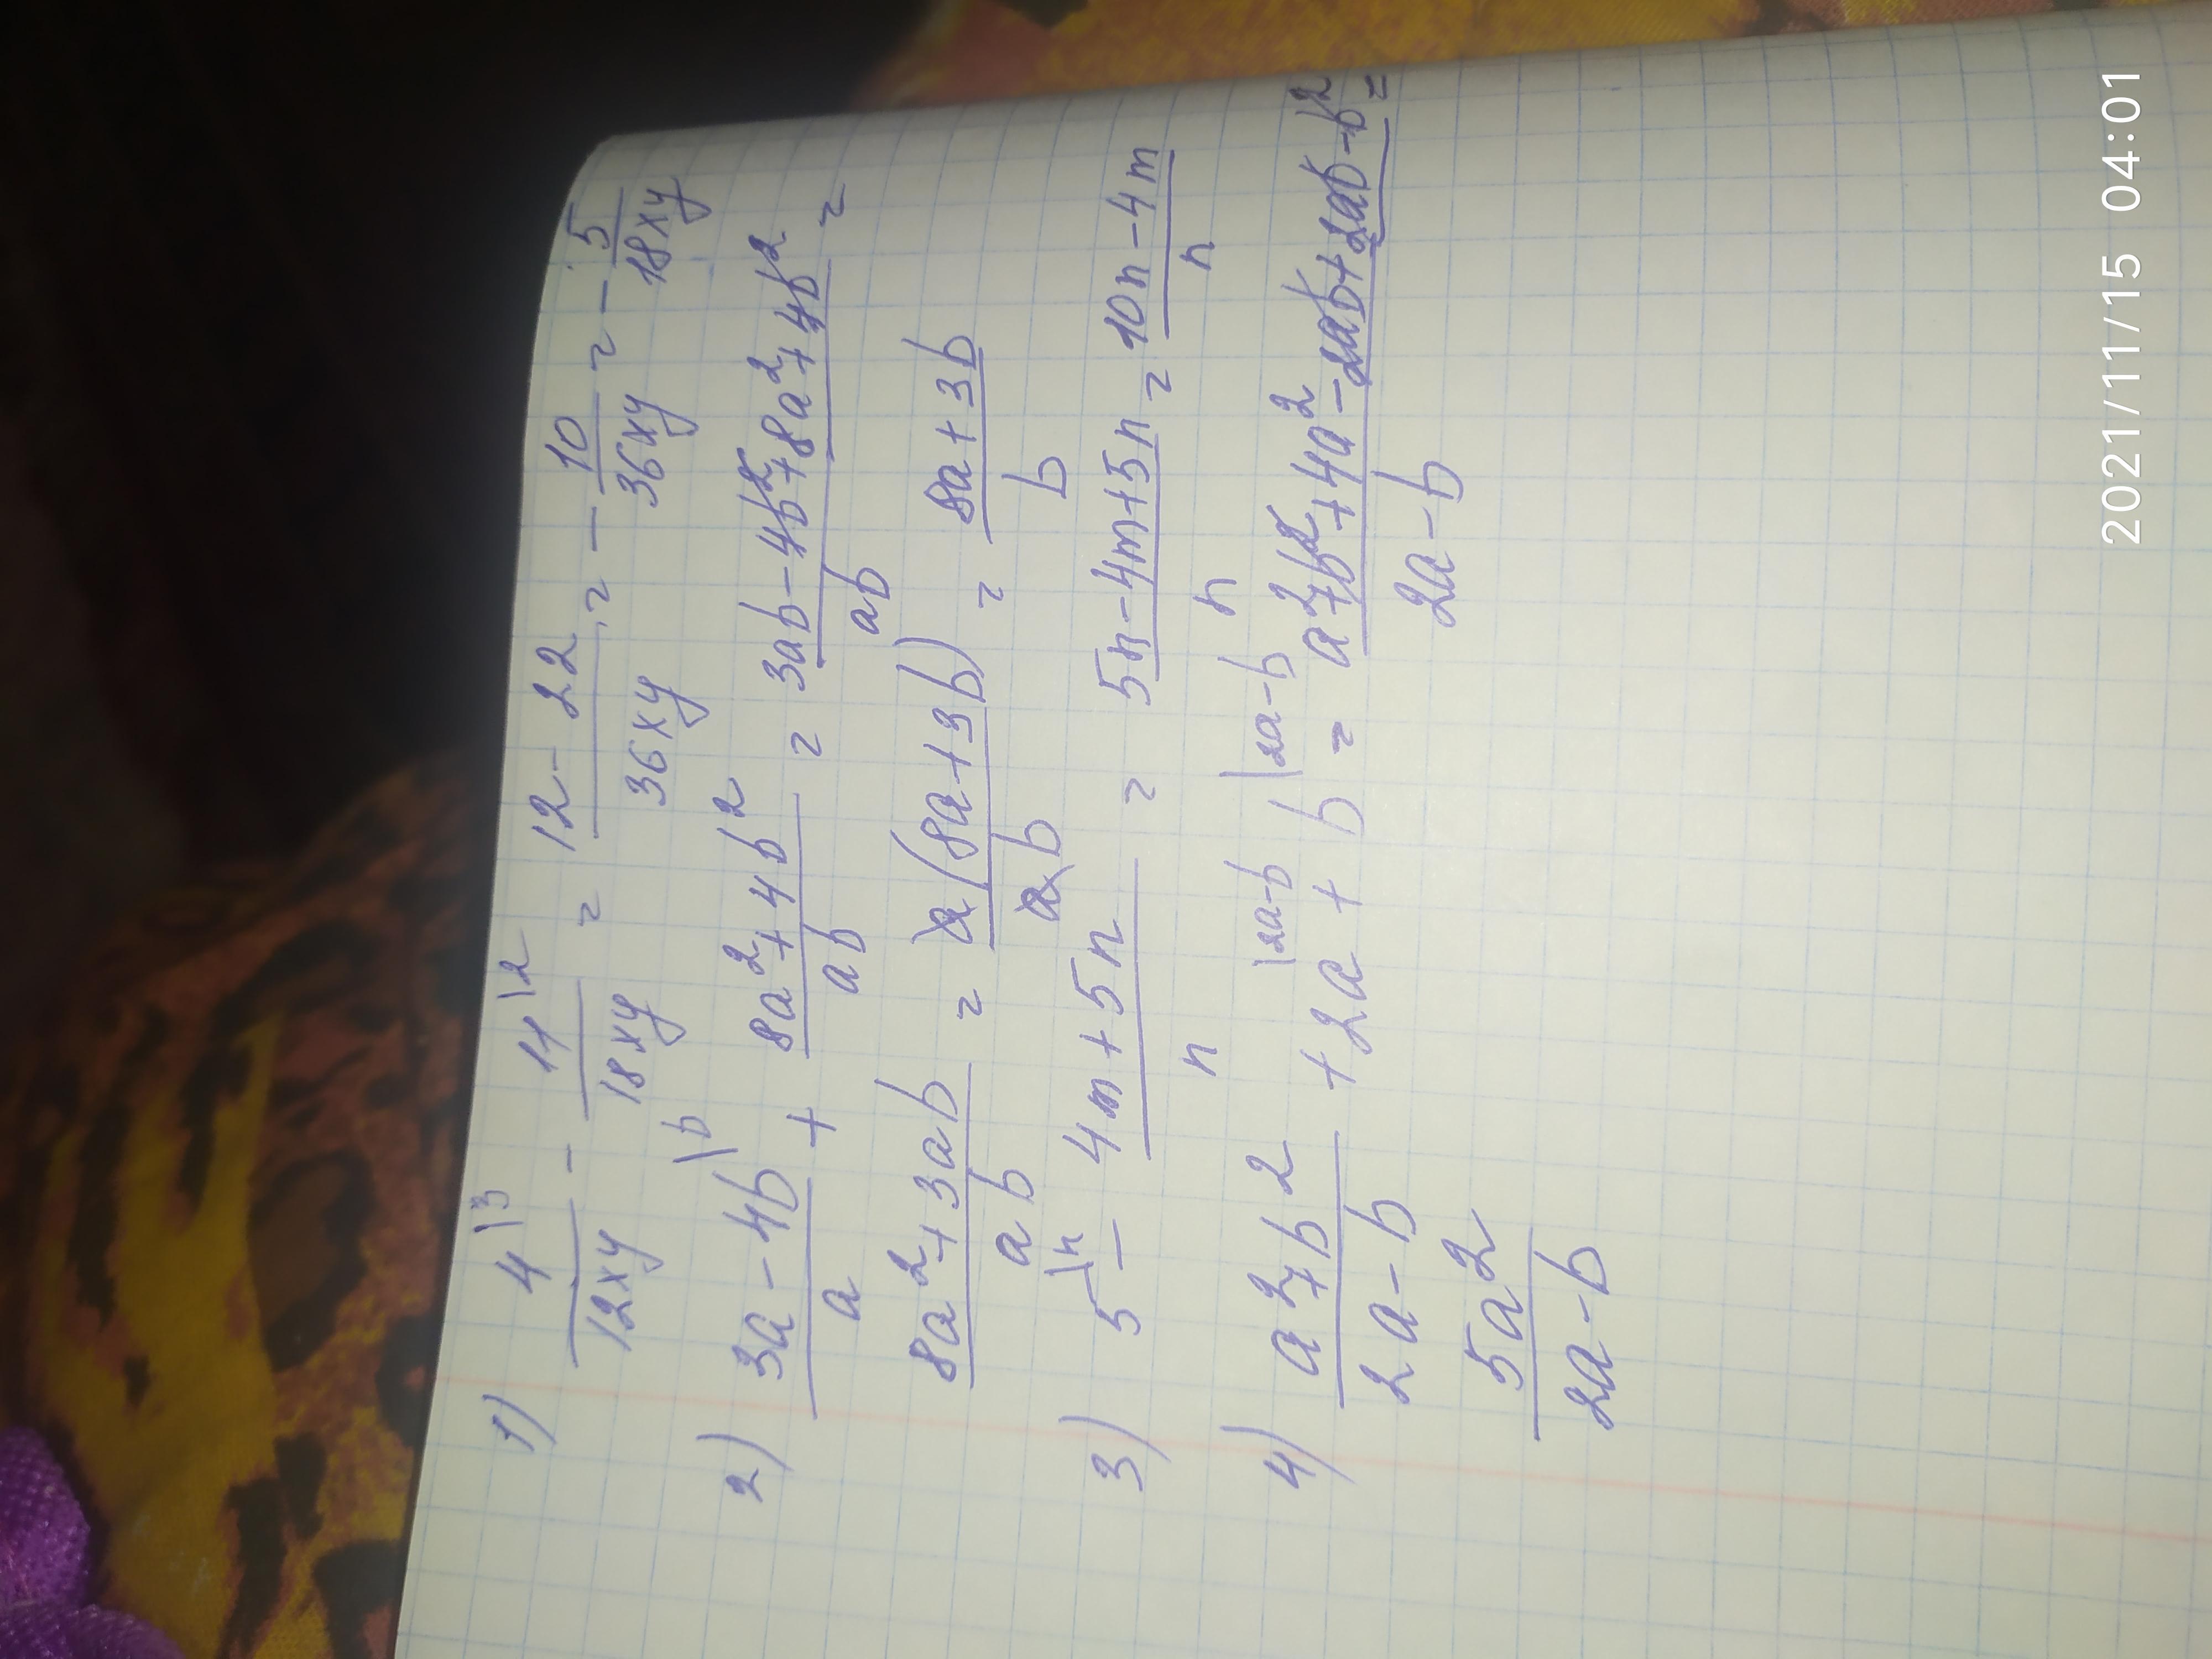 1) 4\3/12xy - 11\2/18xy = 12-22/36xy = -10/36xy = -5/18xy
2) 3a-4b\b/a + 8a²+4b²/ab = 3ab-4b²+8a²+4b²/ab =
8a²+3ab/ab = a(8a+3b)/ab = 8a+3b/b
3) 5\n - 4m+5n/n = 5n-4m+5n/n = 10n-4m/n
4) a²+b²/2a-b + 2a\2a-b + b\2a-b = a²+b²+4a²-2ab+2ab-b²/2a-b =
5a²/2a-b
2021/11/15 04:01